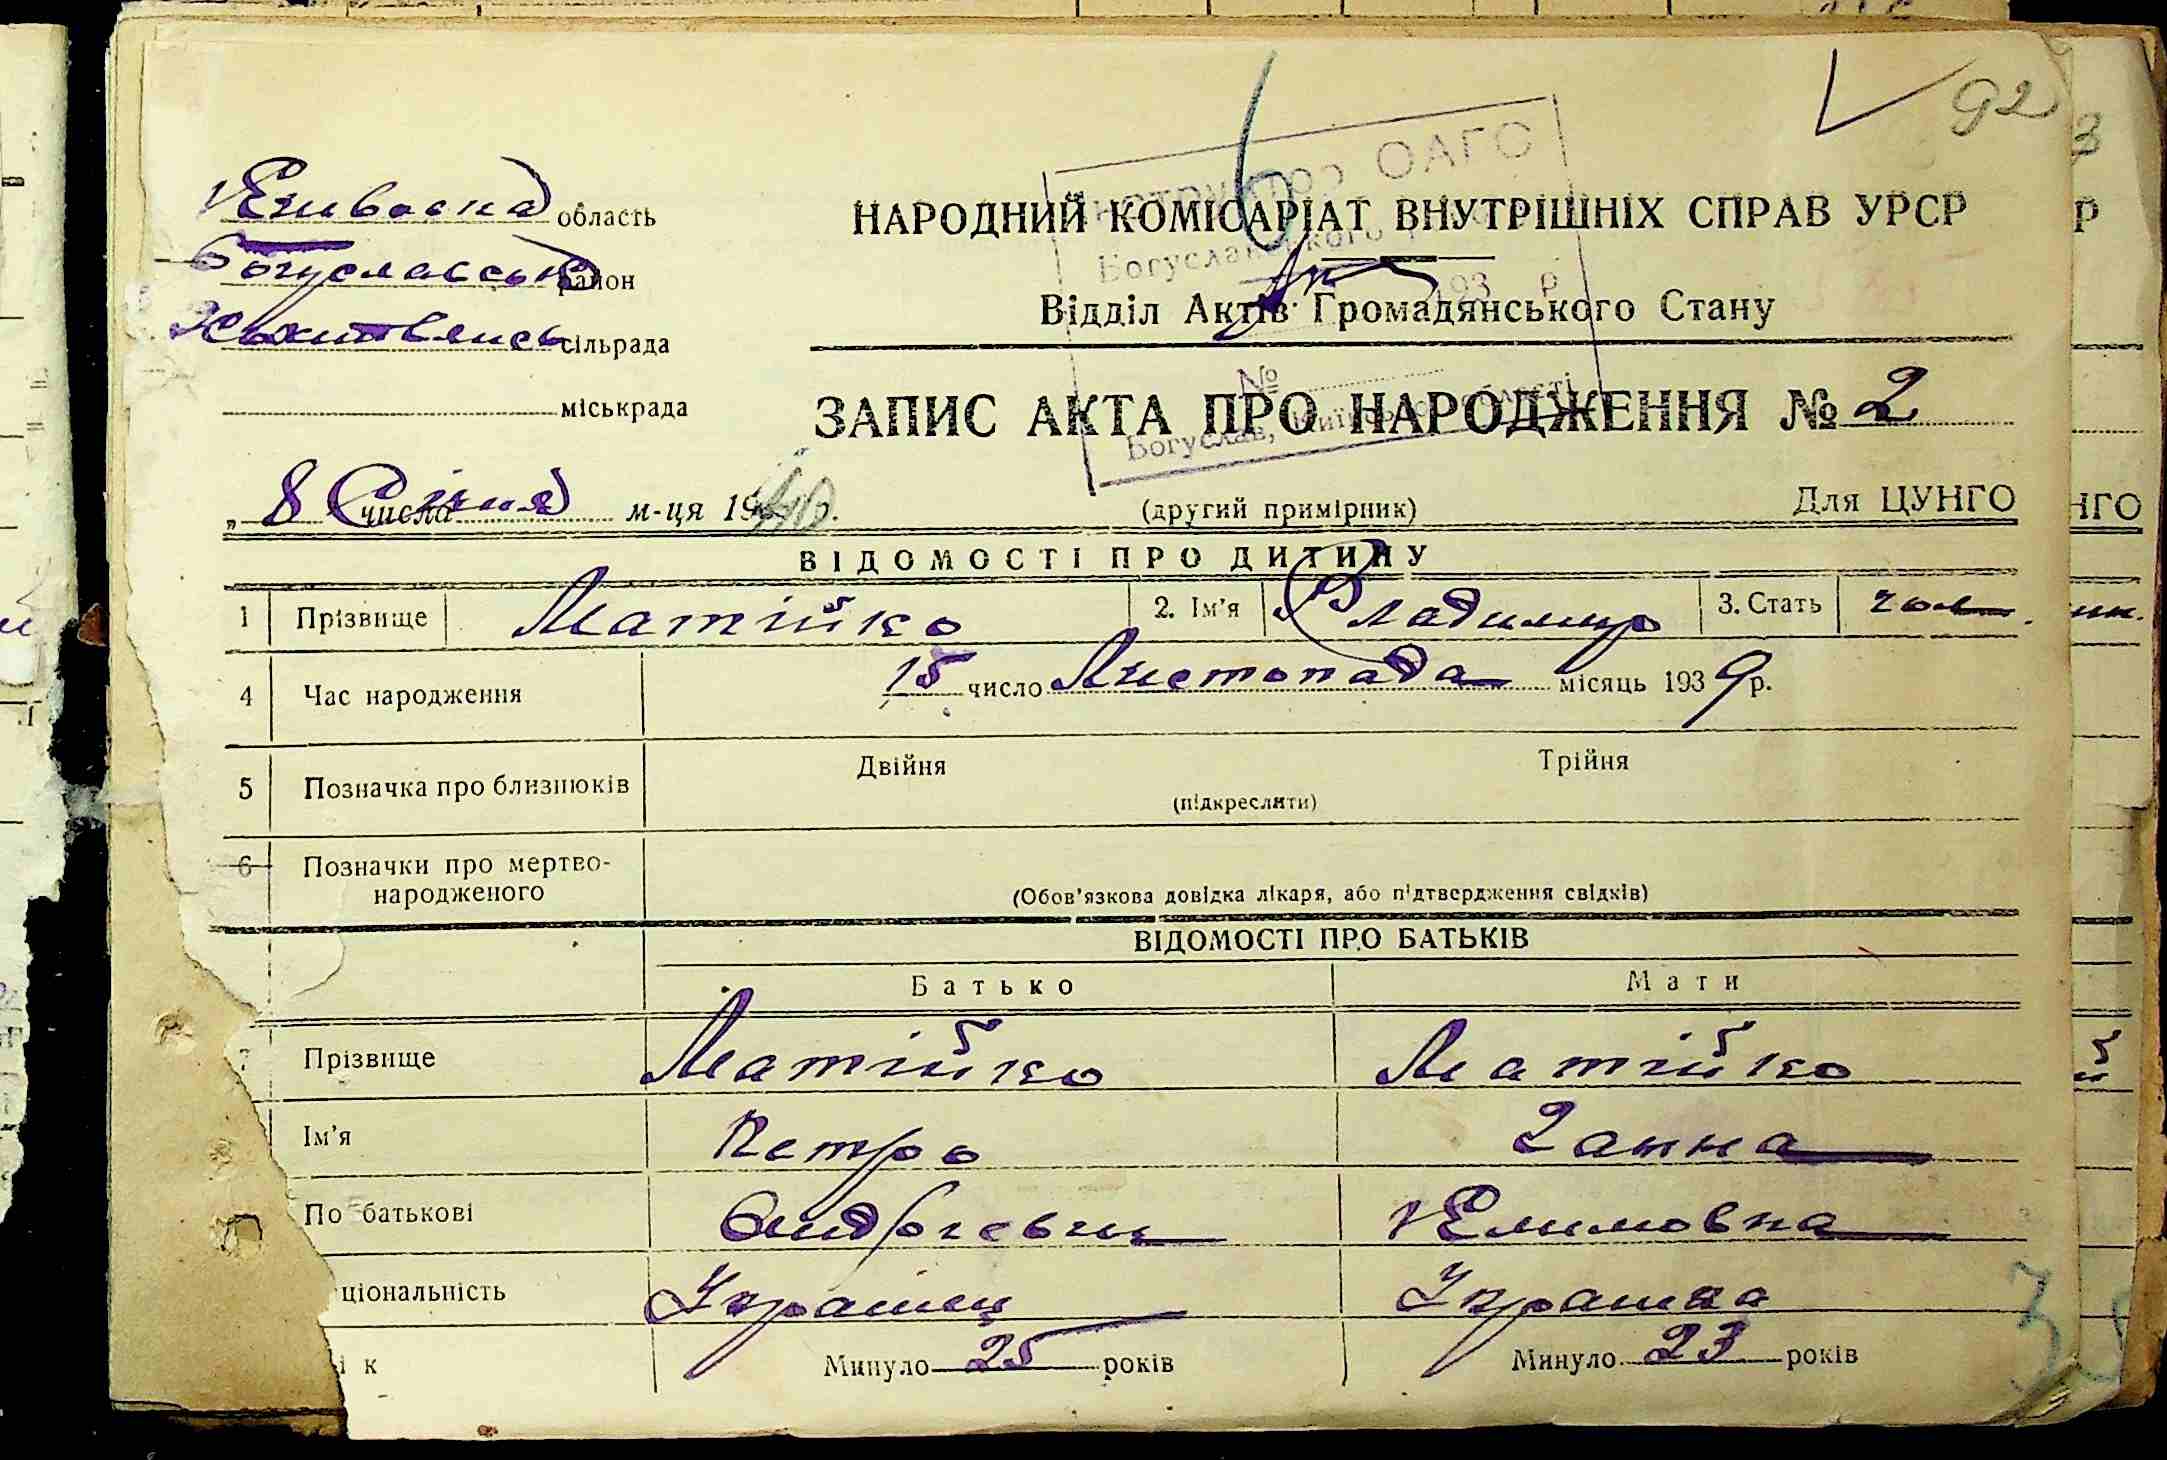 92
Київська область
НАРОДНИЙ КОМІСАРІАТ ВНУТРІШНІХ СПРАВ УРСР
Богуславськ район
Відділ Актів Громадянського Стану
сільрада
міськрада
ЗАПИС АКТА ПРО НАРОДЖЕННЯ № 2
„ 8 Січня числа м-ця 1940р.
(другий примірник)
Для ЦУНГО
ВІДОМОСТІ ПРО ДИТИНУ
1 Прізвище Матійко 2. Ім'я Владимир 3. Стать чол.
4 Час народження 15 число Листопада місяць 1939р.
5 Позначка про близнюків Двійня Трійня
(підкреслити)
6 Позначки про мертво-
народженого
(Обов'язкова довідка лікаря, або підтвердження свідків)
ВІДОМОСТІ ПРО БАТЬКІВ
Батько Мати
7 Прізвище Матійко Матійко
Ім'я Петро Ганна
По батькові Андрієвич Климовна
ціональність Українец Українка
і к Минуло 25 років Минуло 23 років